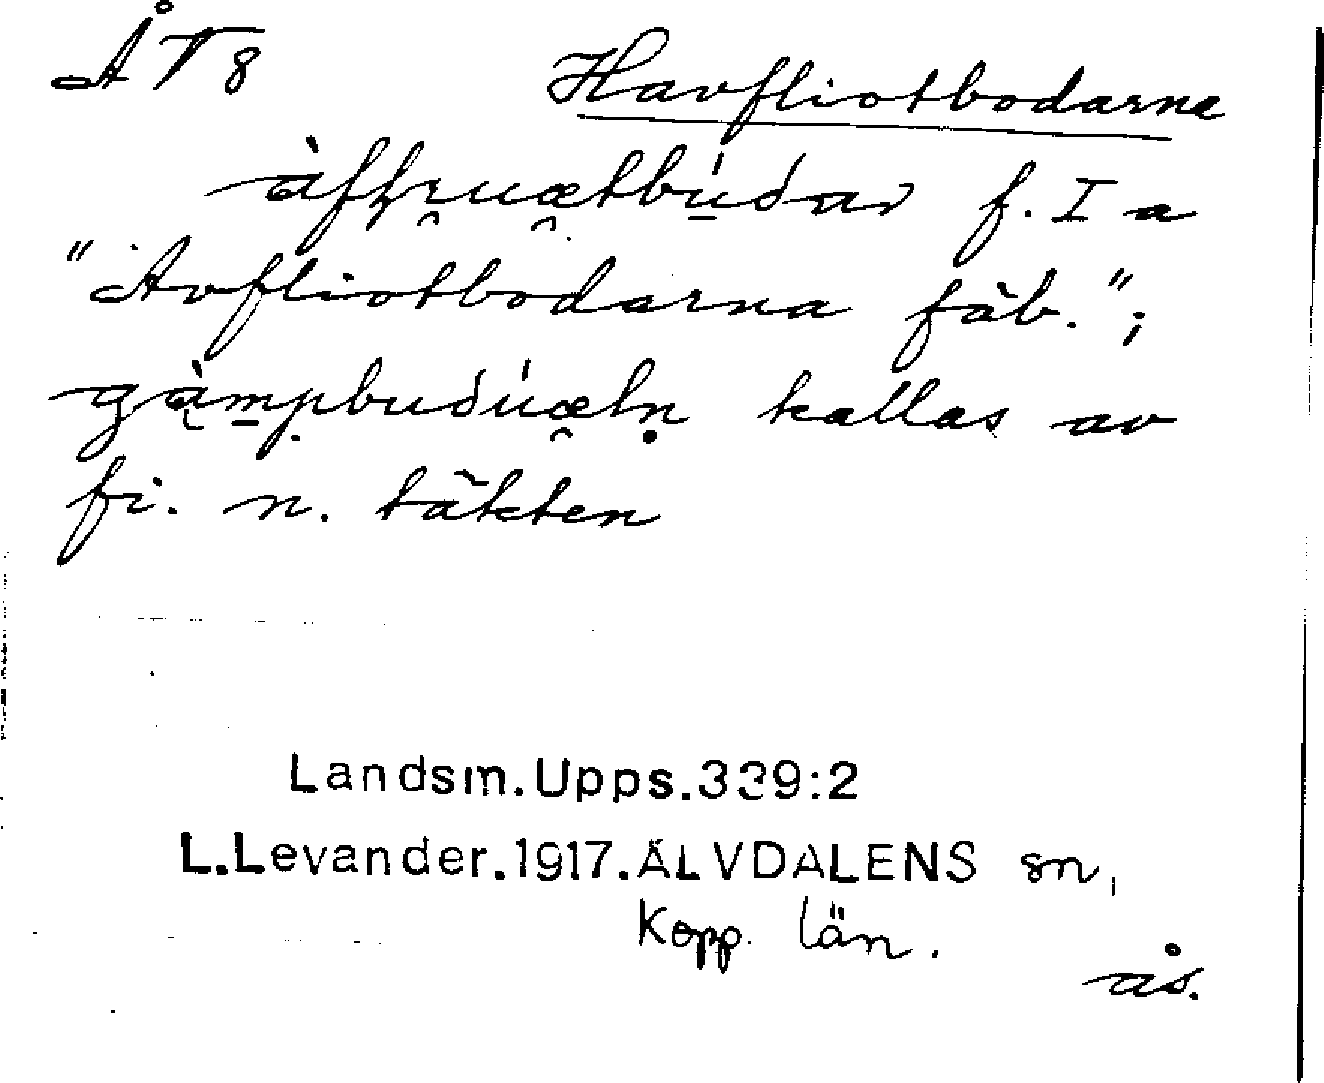 ÅT8 Havfliotbodarna
àfꞎɩ̯uæ̯tbú̲dar f. I a
"Avfliotbodarna fäb.";
kallas av
fi. n. täkten
Landsm.Upps.339:2
L.Levander.1917.ÄLVDALENS sn,
Kopp. län.
ås.